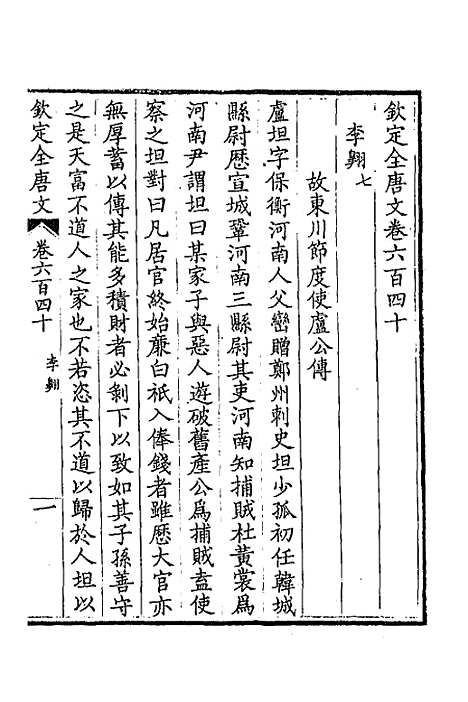 欽定全唐文卷六百四十
李翺七
故東川節度使盧公傳
盧坦字保衡河南人父巒贈鄭州刺史坦少孤初任韓城
縣尉歷宣城鞏河南三縣尉其吏河南知捕賊杜黃裳爲
河南尹謂坦曰某家子與惡人遊破舊產公爲捕賊盍使
察之坦對曰凡居官終始廉白祇入俸錢者雖歷大官亦
無厚蓄以傳其能多積財者必剝下以致如其子孫善守
之是天富不道人之家也不若恣其不道以歸於人坦以
欽定全唐文
卷六百四十
李翺
一